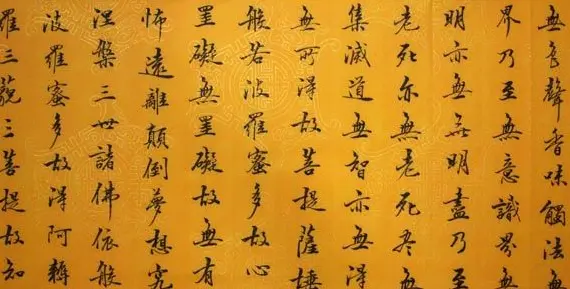 無色聲香味觸法無
界乃至無意識界無
明亦無无明盡乃至
老死亦無老死尽無
集滅道無智亦無得
無所得故菩提薩埵
般若波羅蜜多故心
罣礙無罣礙故無有
怖遠離顛倒夢想究
涅槃三世諸佛依般
波羅蜜多故得阿耨
羅三藐三菩提故知